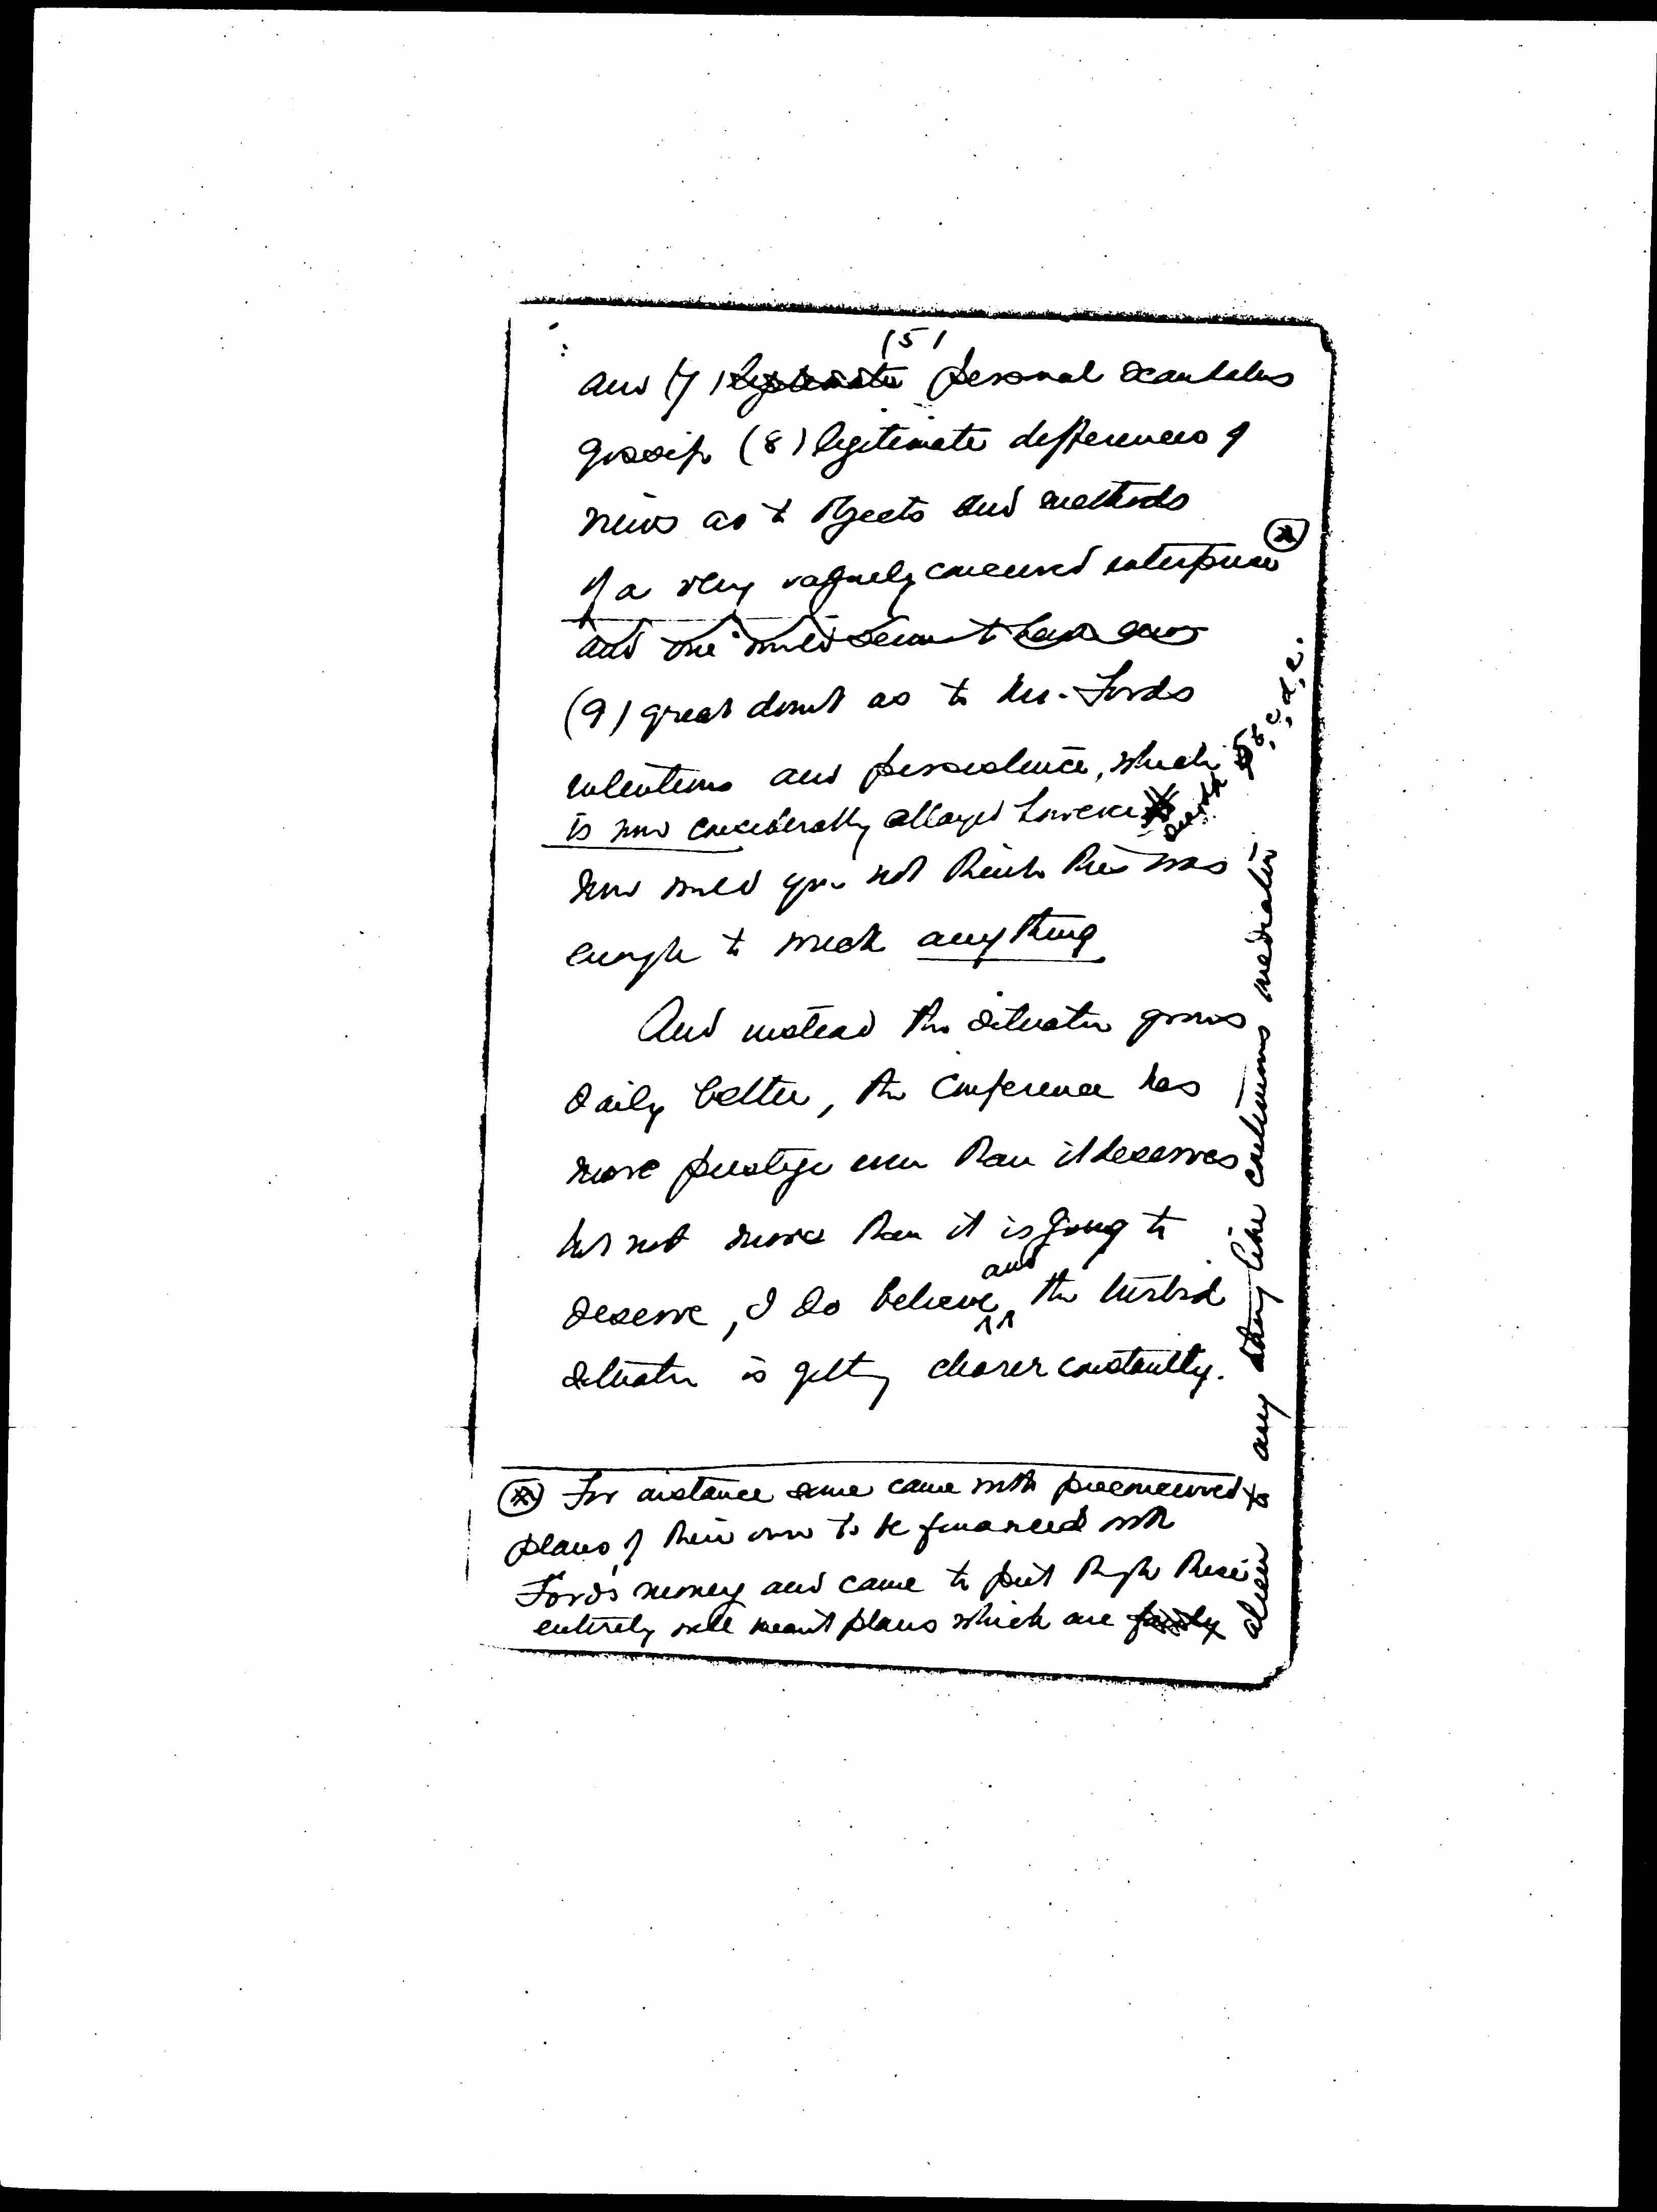 (5)
and (7) legitimate personal scandalous
gossip (8) legitimate differences of
views as to objects and methods
of a very vaguely conceived enterprise (*)
and one would seem to have
(9) great doubt as to Mr. Fords
intentions and persistence, which
is now considerably allayed however
b, c, d, e.
Now would you not think this was
enough to wreck anything
And instead the situation grows
daily better, the conference has
more prestige even than it deserves
but not more than it is going to
and
deserve, I do believe, the turbid
situation is getting clearer constantly.
(*) For instance some came with preconceived
plans of their own to be financed with
Ford's money and came to put thro' these
entirely well meant plans which are fairly
alien to any thing like continuous mediation